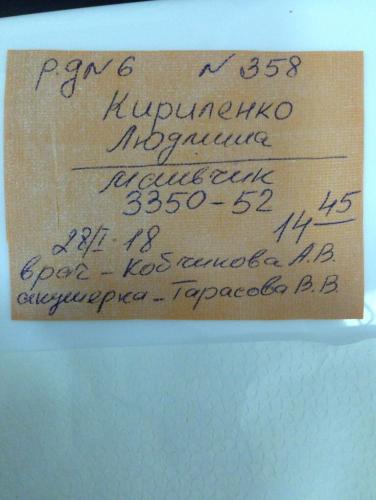 р.д N 6 N 358
Кириленко
Людмила
мальчик
3350-52
14 45
28/I-18
врач - Кобчикова А.В.
акушерка - Тарасова В.В